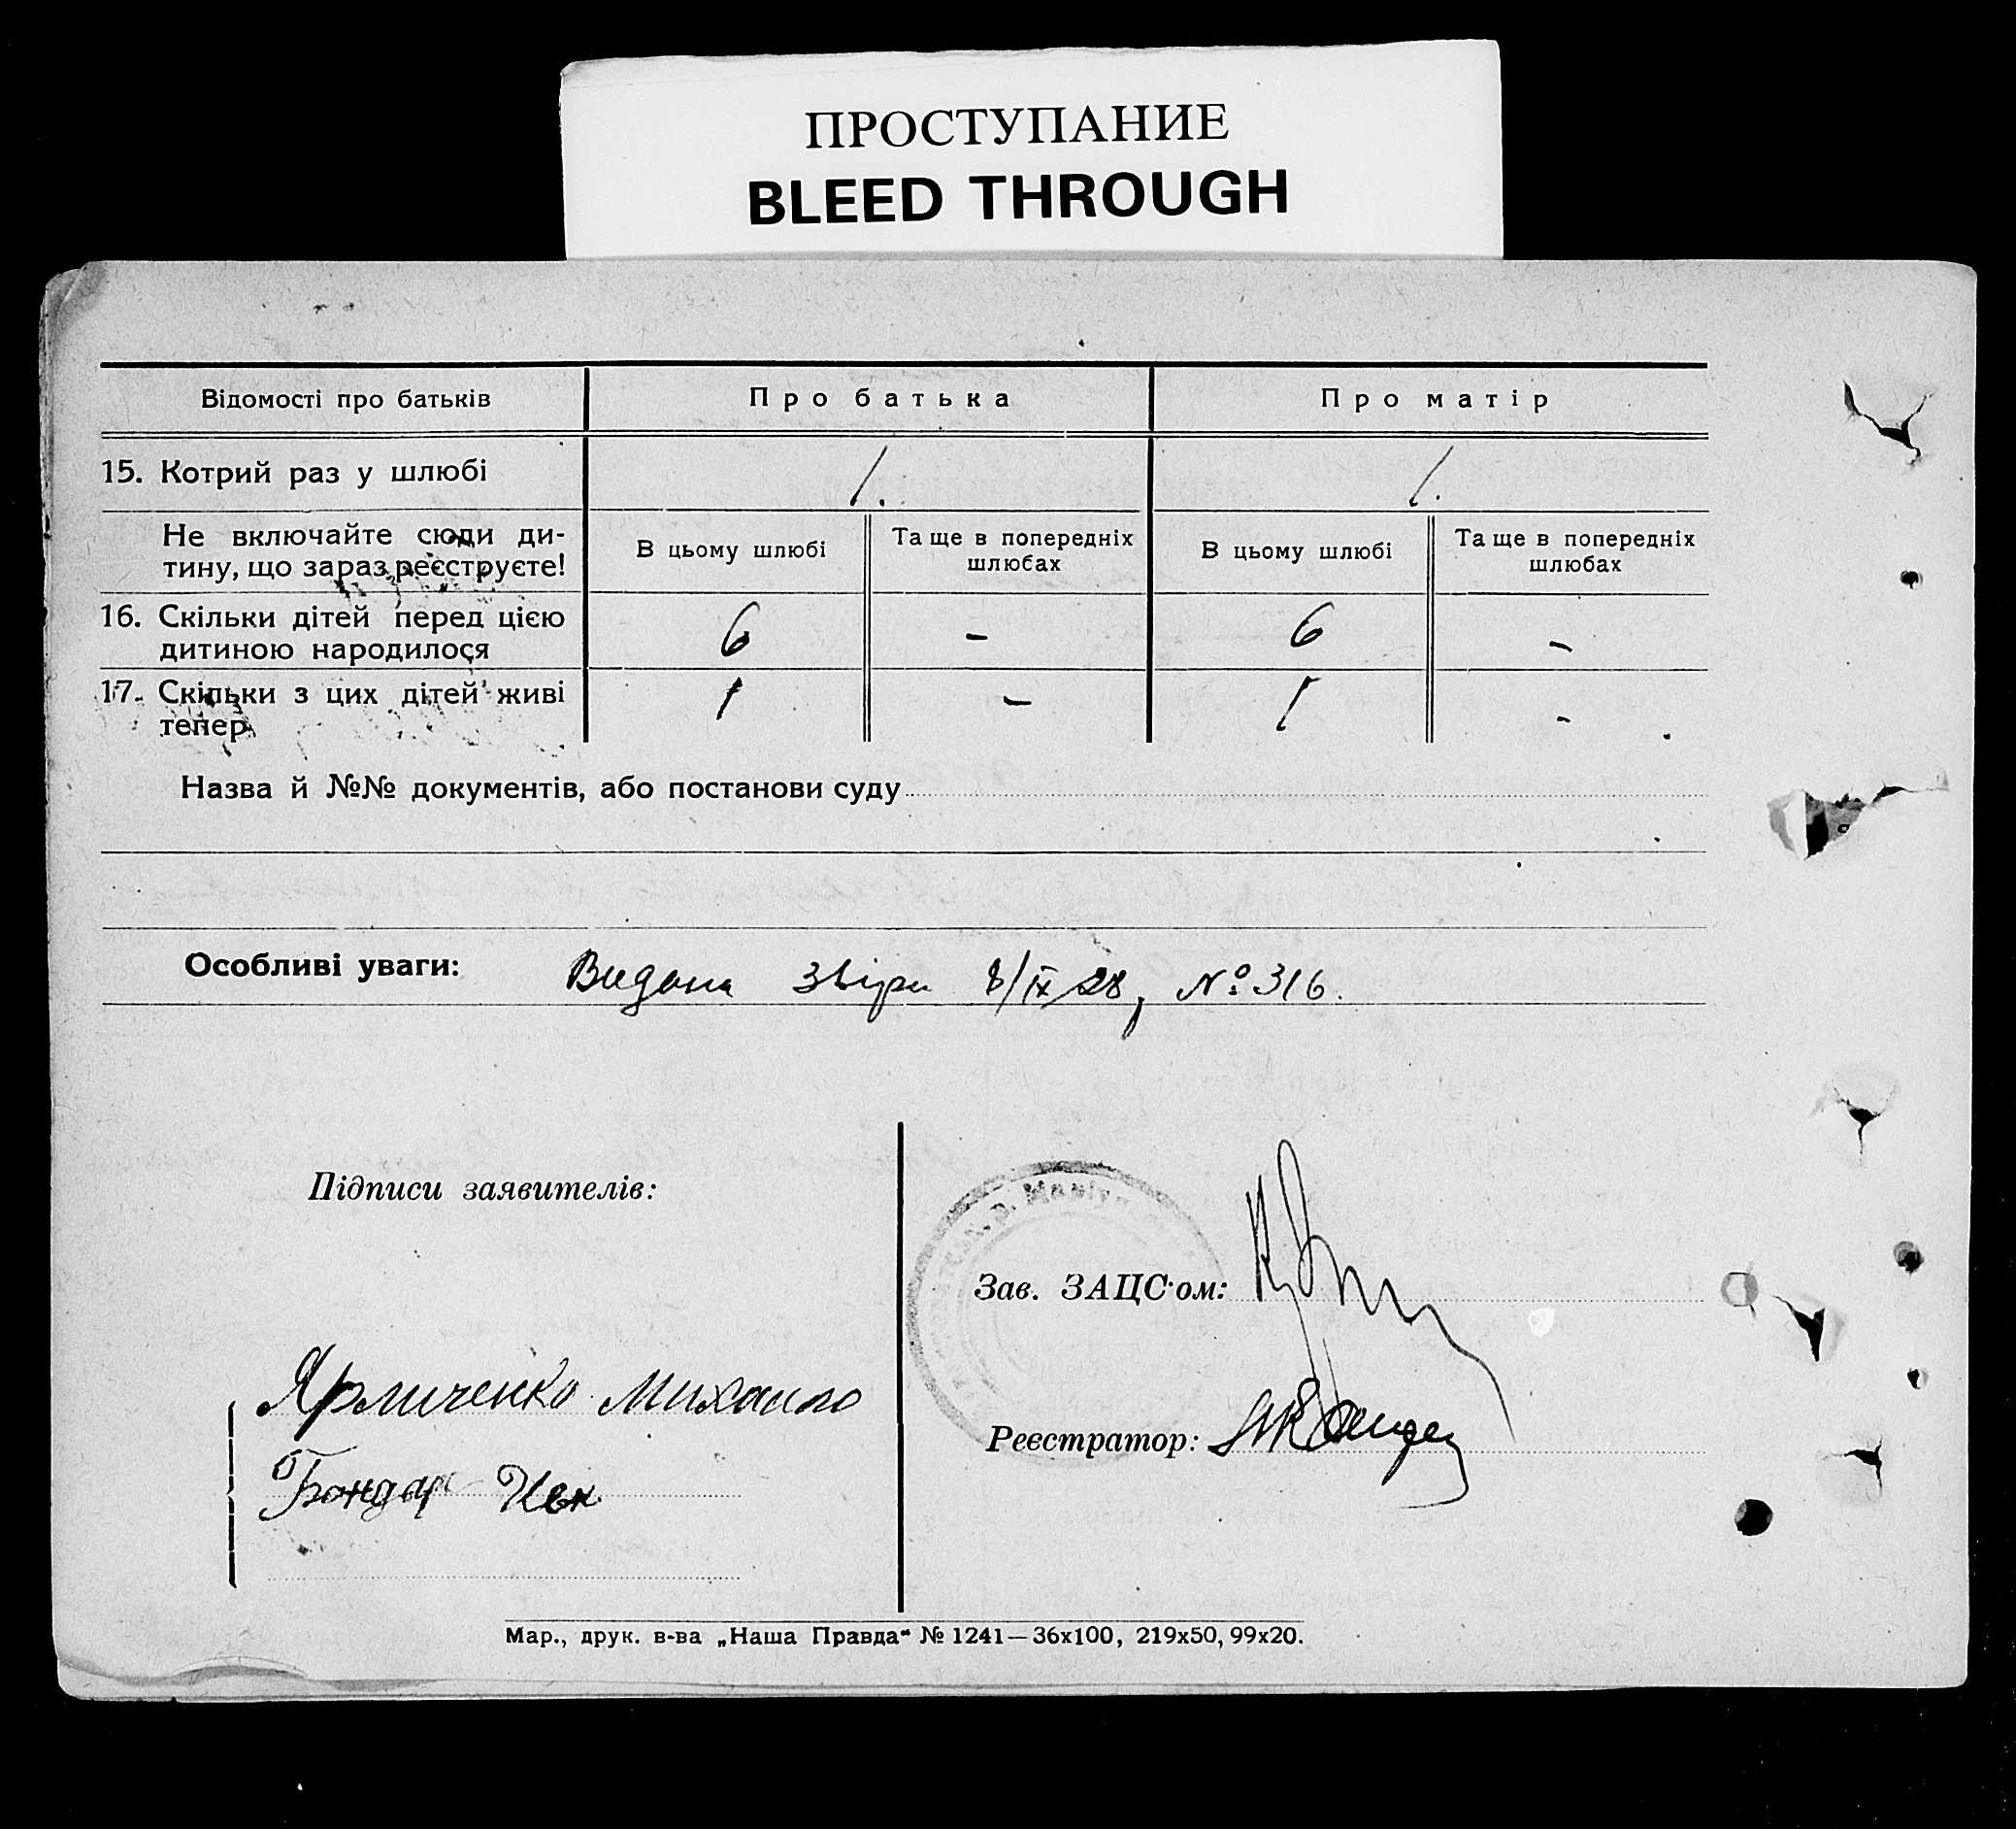 ПРОСТУПАНИЕ
BLEED THROUGH
Відомості про батьків Про батька Про матір
15. Котрий раз у шлюбі 1. 1.
Не включайте сюди ди-
тину, що зараз реєструєте!
В цьому шлюбі Та ще в попередніх
шлюбах
В цьому шлюбі Та ще в попередніх
шлюбах
16. Скільки дітей перед цією
дитиною народилося 6 - 6 -
17. Скільки з цих дітей живі
тепер 1 - 1 -
Назва й №№ документів, або постанови суду
Особливі уваги: Видана 8/IX 28, № 316.
Підписи заявителів:
Зав. ЗАЦС'ом:
Михайло
Реєстратор:
Бондар
Мар., друк. в-ва „Наша Правда“ № 1241—36х100, 219х50, 99х20.